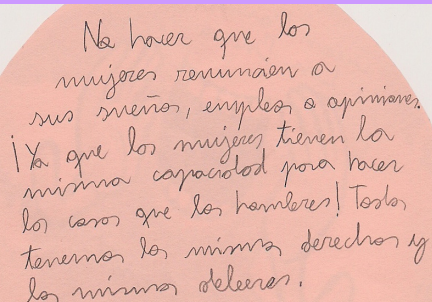 No hacer que las
mujeres renuncien a
sus sueños, empleos o opiniones.
¡Ya que las mujeres tienen la
misma capacidad para hacer
las cosas que los hombres! Todos
tenemos los mismos derechos y
los mismos deberes.